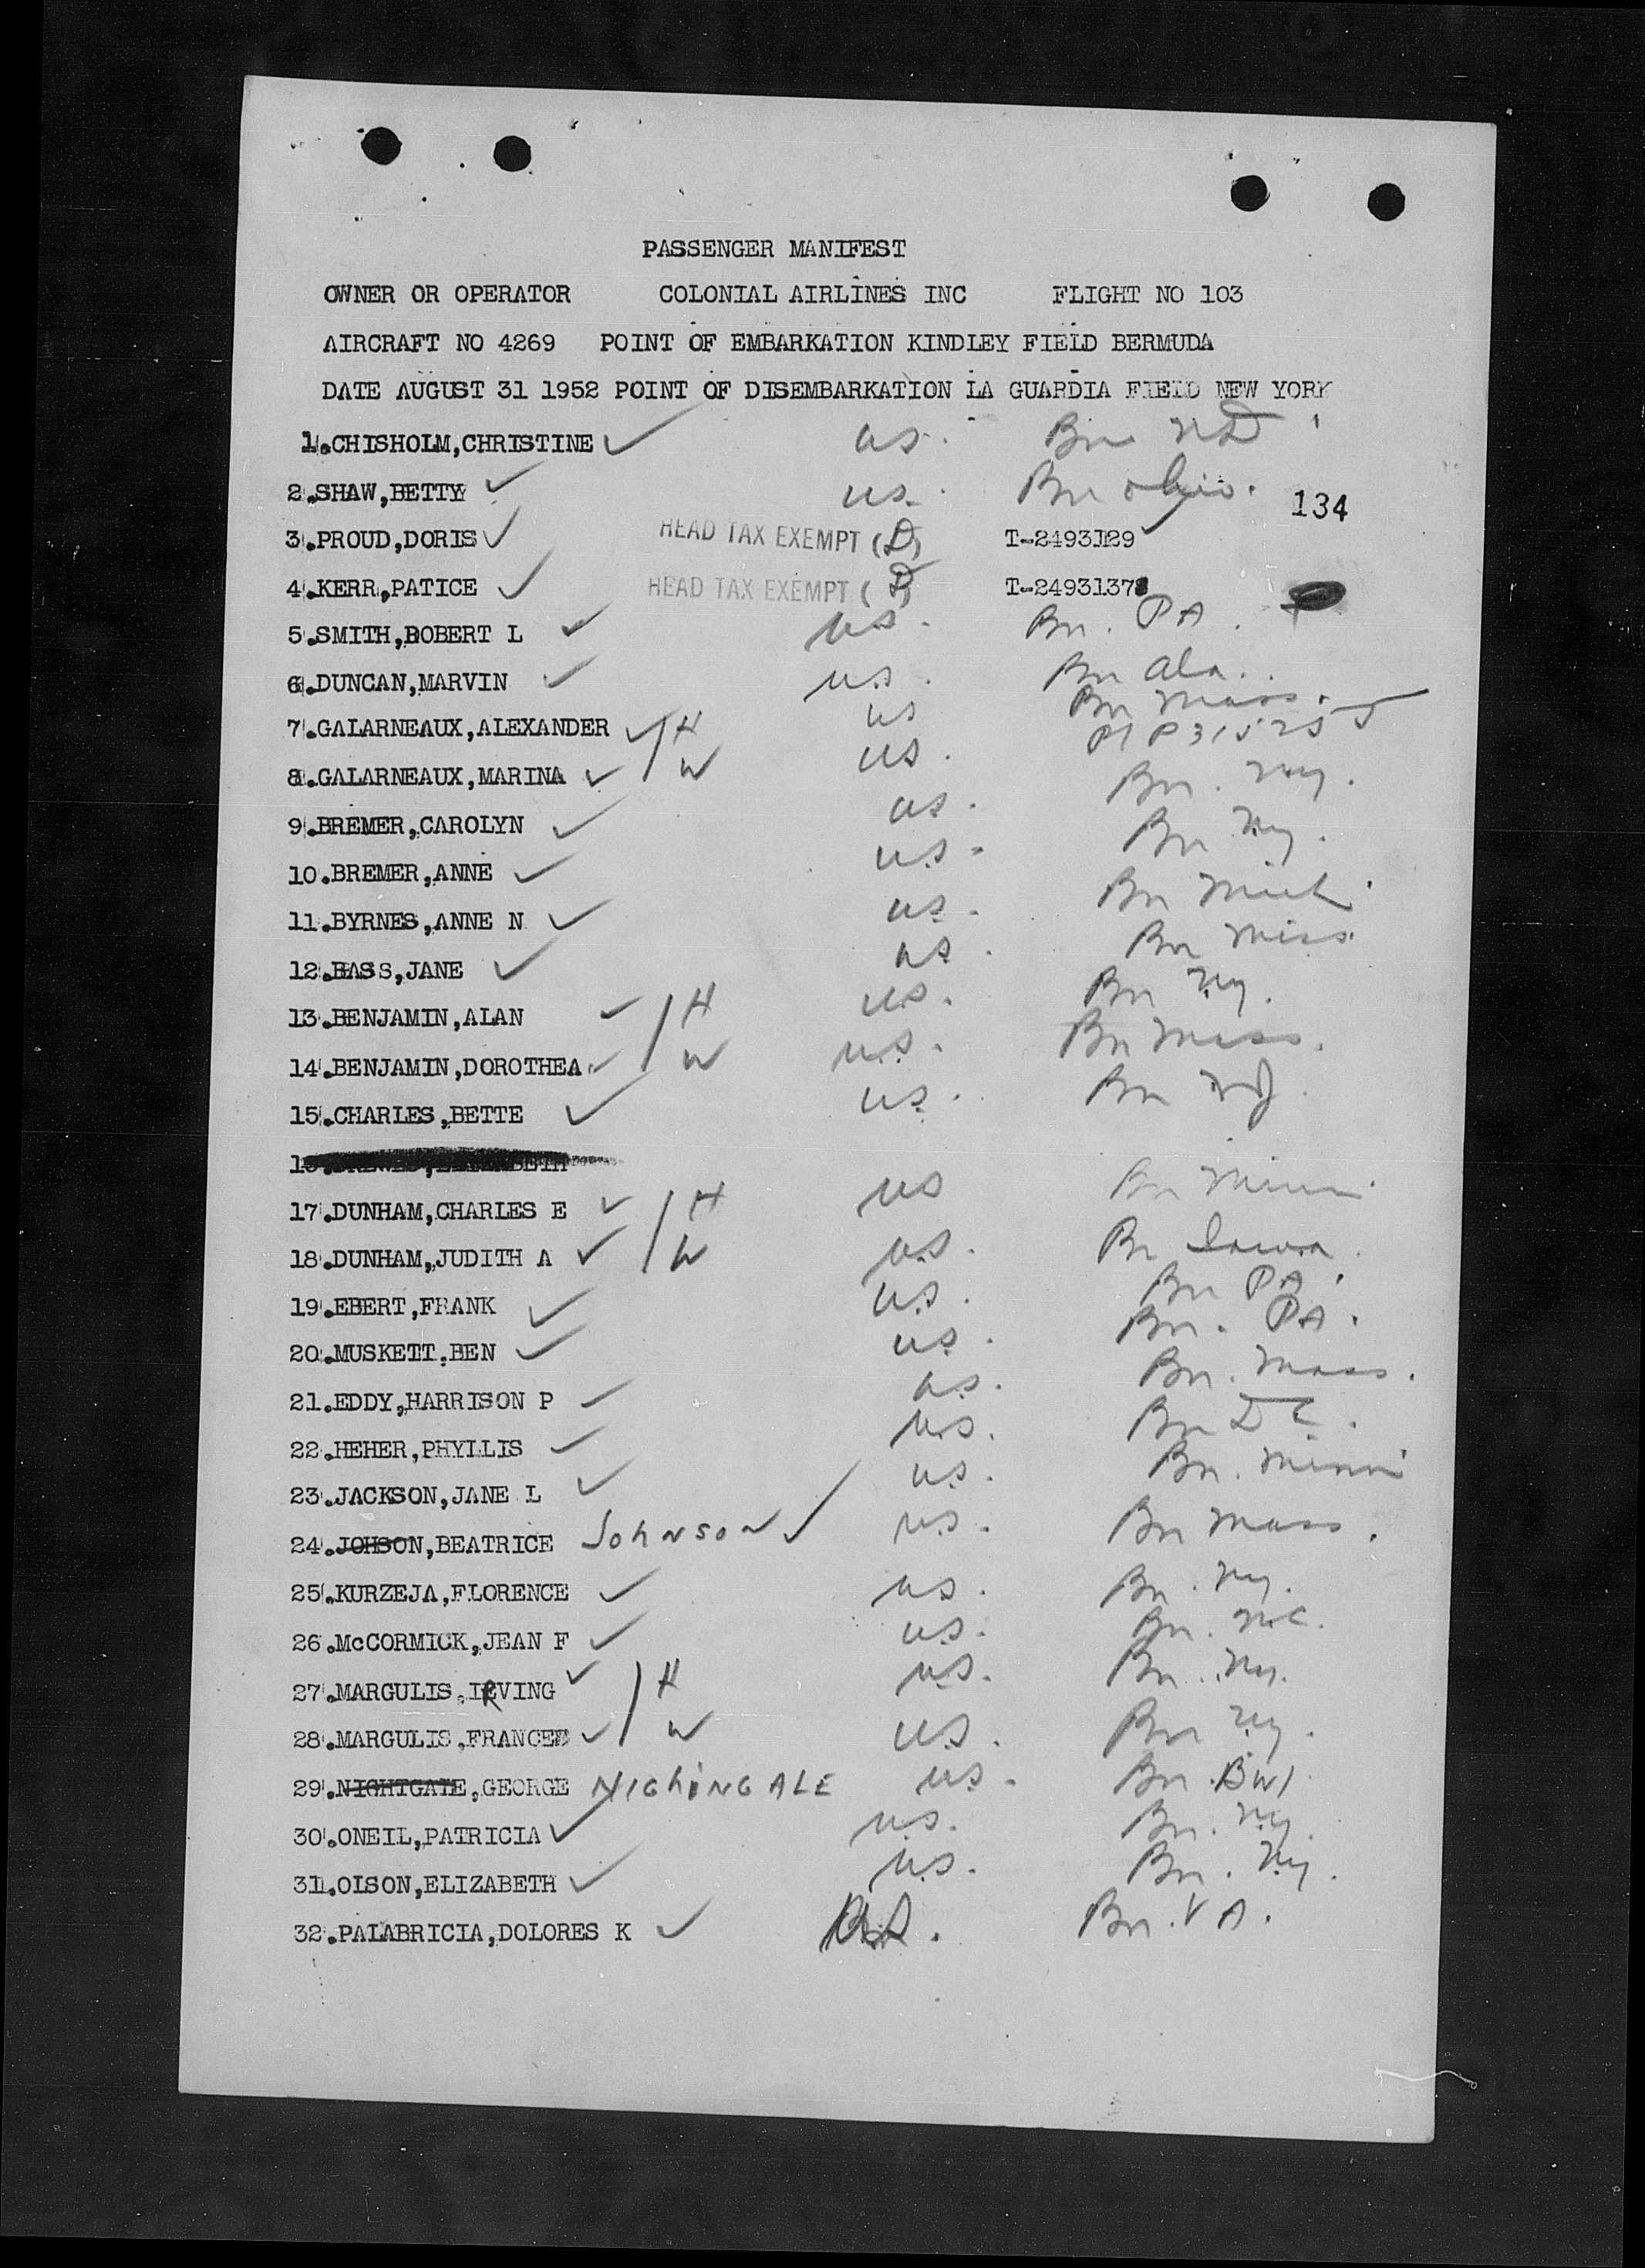 PASSENGER MANIFEST
OWNER OR OPERATOR COLONIAL AIRLINES INC FLIGHT NO 103
AIRCRAFT NO 4269 POINT OF EMBARKATION KINDLEY FIELD BERMUDA
DATE AUGUST 31 1952 POINT OF DISEMBARKATION LA GUARDIA FIELD NEW YORK
1.CHISHOLM,CHRISTINE ✓ US. Bn ND
2.SHAW,BETTY ✓ US. Bn Ohio.
134
3.PROUD,DORIS ✓ HEAD TAX EXEMPT (D) T-2493129 ✓
4.KERR,PATICE ✓ HEAD TAX EXEMPT (D) T-24931378
5.SMITH,ROBERT L ✓ US. Bn. PA.
6.DUNCAN,MARVIN ✓ US. Bn Ala.
7.GALARNEAUX,ALEXANDER ✓ H US Bn Mass.
8.GALARNEAUX,MARINA ✓ W US. PP P31525
9.BREMER,CAROLYN ✓ US. Bn. Ny.
10.BREMER,ANNE ✓ US. Bn Ny.
11.BYRNES,ANNE N ✓ US. Bn Mich
12.BASS,JANE ✓ US. Bn Miss.
13.BENJAMIN,ALAN ✓ H US. Bn Ny.
14.BENJAMIN,DOROTHEA ✓ W US. Bn Mass.
15.CHARLES,BETTE ✓ US. Bn NJ
17.DUNHAM,CHARLES E ✓ H US Bn Minn
18.DUNHAM,JUDITH A ✓ W US. Bn Iowa.
19.EBERT,FRANK ✓ US. Bn PA.
20.MUSKETT,BEN ✓ US. Bn. PA.
21.EDDY,HARRISON P ✓ US. Bn. Mass.
22.HEHER,PHYLLIS ✓ US. Bn DC.
23.JACKSON,JANE L ✓ US. Bn. Minn
24.JOHSON,BEATRICE Johnson ✓ US. Bn Mass.
25.KURZEJA,FLORENCE ✓ US. Bn. Ny.
26.McCORMICK,JEAN F ✓ US. Bn. NC.
27.MARGULIS,IRVING ✓ H US. Bn. Ny.
28.MARGULIS,FRANCES ✓ W US. Bn Ny.
29.NIGHTGATE,GEORGE NIGhiNGALE US. Bn. BWI
30.ONEIL,PATRICIA ✓ US. Bn. Ny.
31.OLSON,ELIZABETH ✓ US. Bn. Ny.
32.PALABRICIA,DOLORES K ✓ US. Bn. VA.